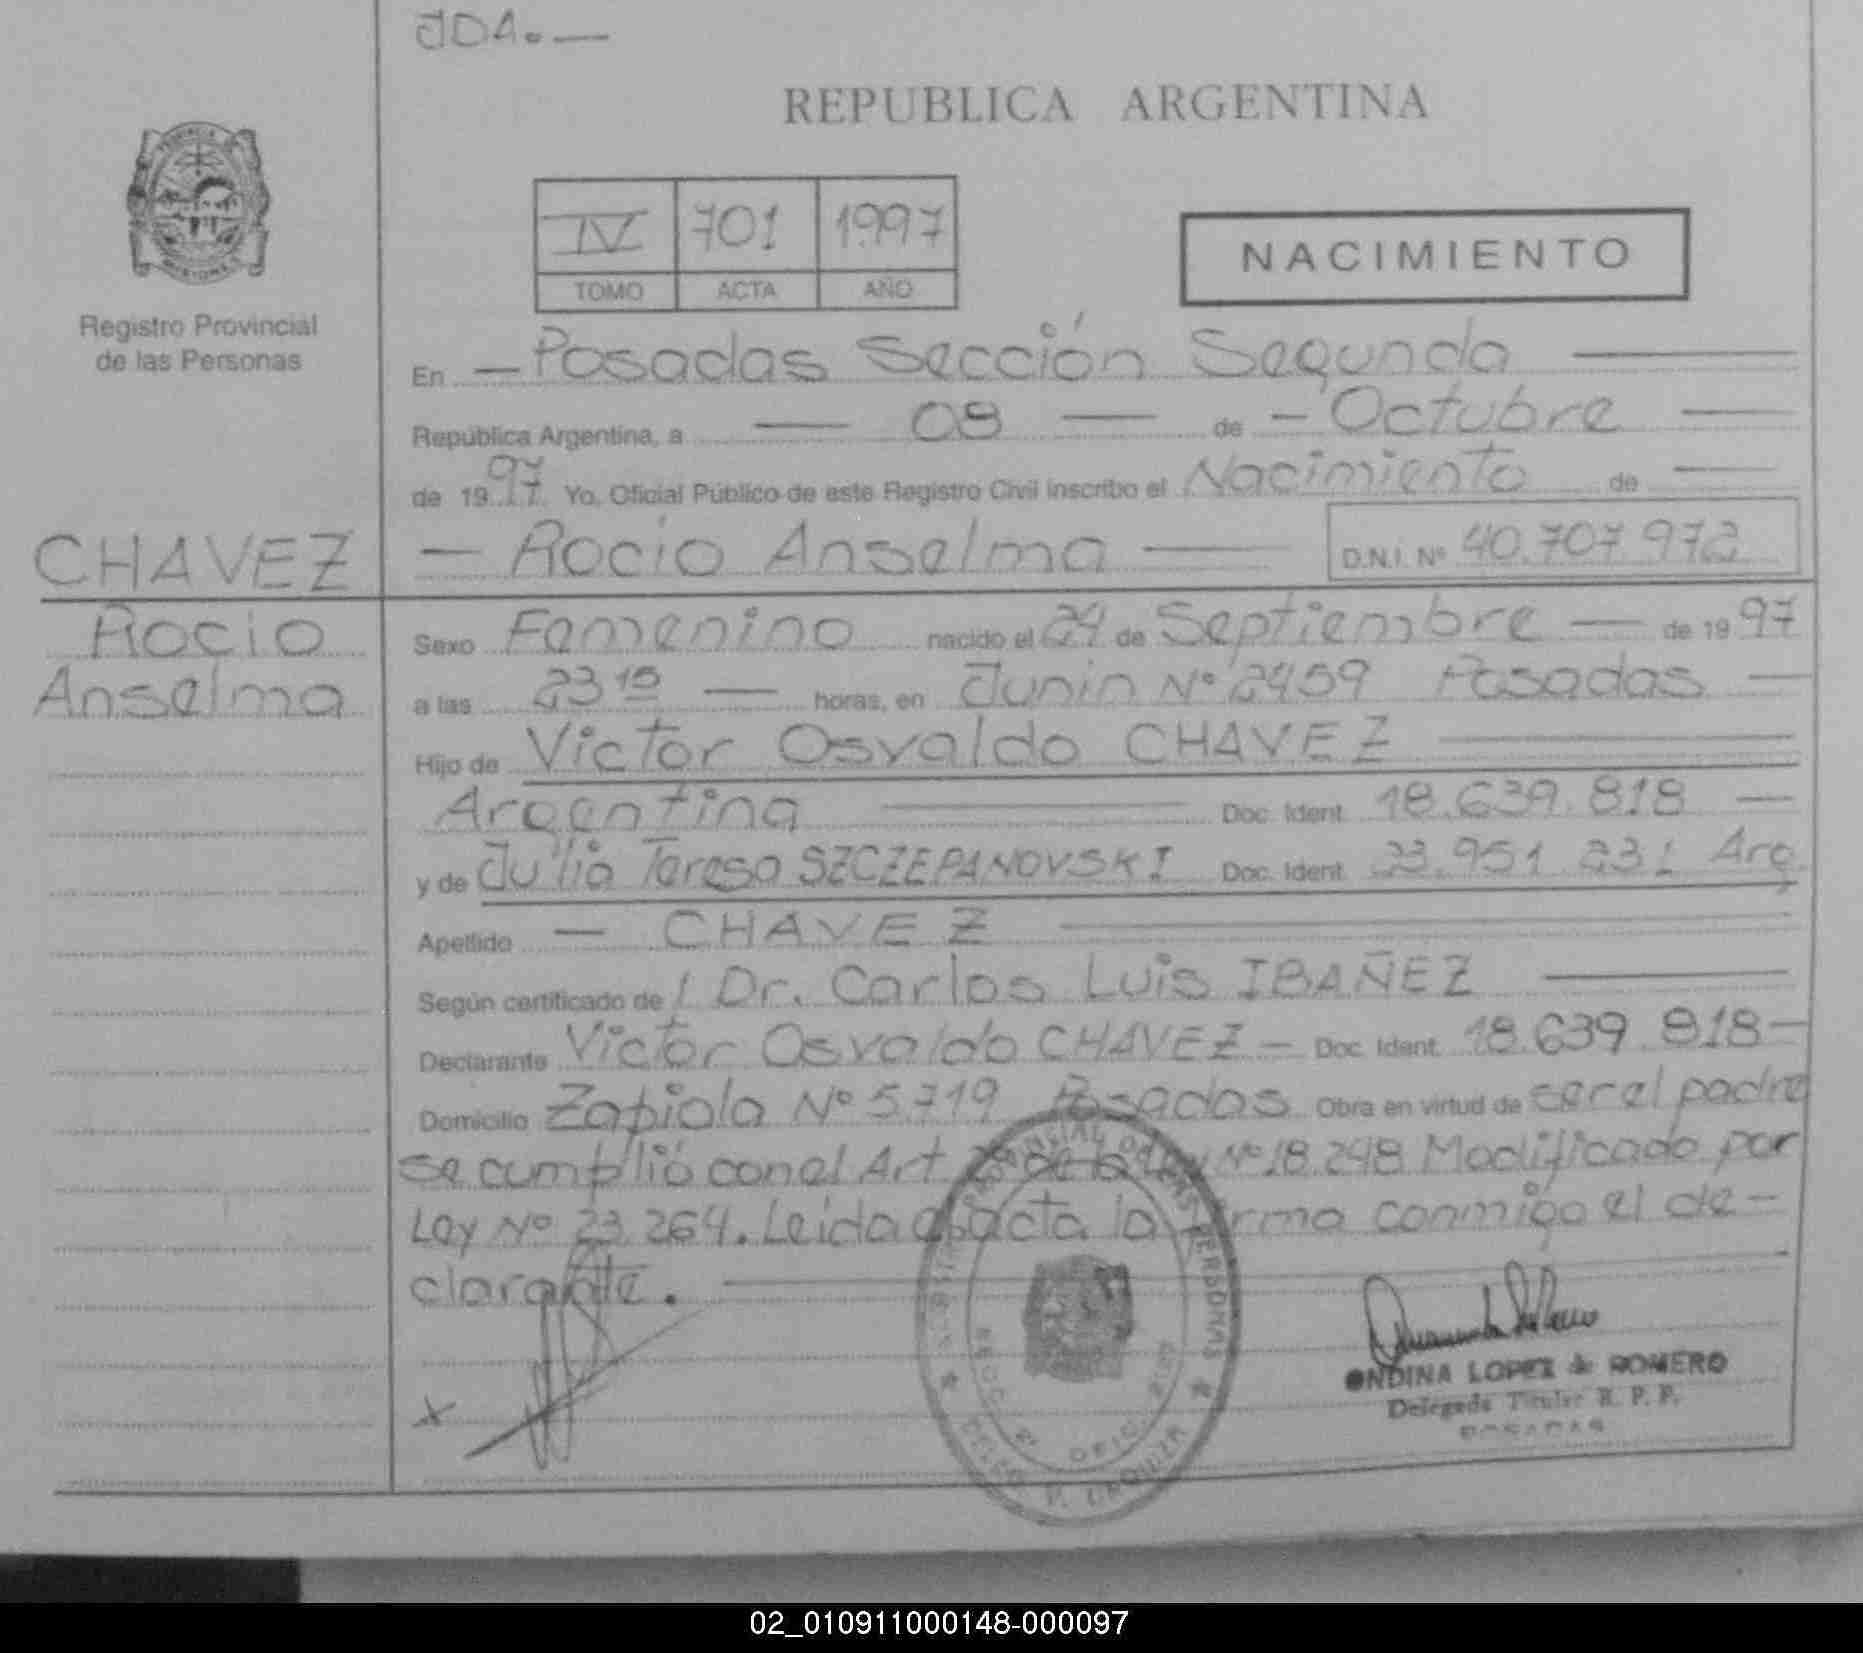 JDA.—
REPUBLICA ARGENTINA
IV 701 1997
TOMO ACTA AÑO
NACIMIENTO
Registro Provincial
de las Personas
En — Posadas Sección Segunda —
República Argentina, a — 08 — de — Octubre —
de 1997 Yo, Oficial Público de este Registro Civil inscribo el Nacimiento de —
CHAVEZ
Rocio
Anselma
— Rocio Anselma — D.N.I. Nº 40.707.972
Sexo Femenino nacido el 24 de Septiembre — de 1997
a las 23 15 — horas, en Junin Nº 2459 Posadas —
Hijo de Victor Osvaldo CHAVEZ —
Argentina — Doc. Ident. 18.639.818 —
y de Julia Teresa SZCZEPANOVSKI Doc. Ident. 23.951.231 Arg.
Apellido — CHAVEZ —
Según certificado de Dr. Carlos Luis IBAÑEZ —
Declarante Victor Osvaldo CHAVEZ — Doc. Ident. 18.639.818 —
Domicilio Zapiola Nº 5.719 Posadas Obra en virtud de ser el padre
se cumplió con el Art. de la Ley Nº 18.248 Modificado por
Ley Nº 23.264. Leida el acta la firma conmigo el de-
clarante. —
ONDINA LOPEZ de ROMERO
Delegada Titular R. P. P.
POSADAS
02_010911000148-000097